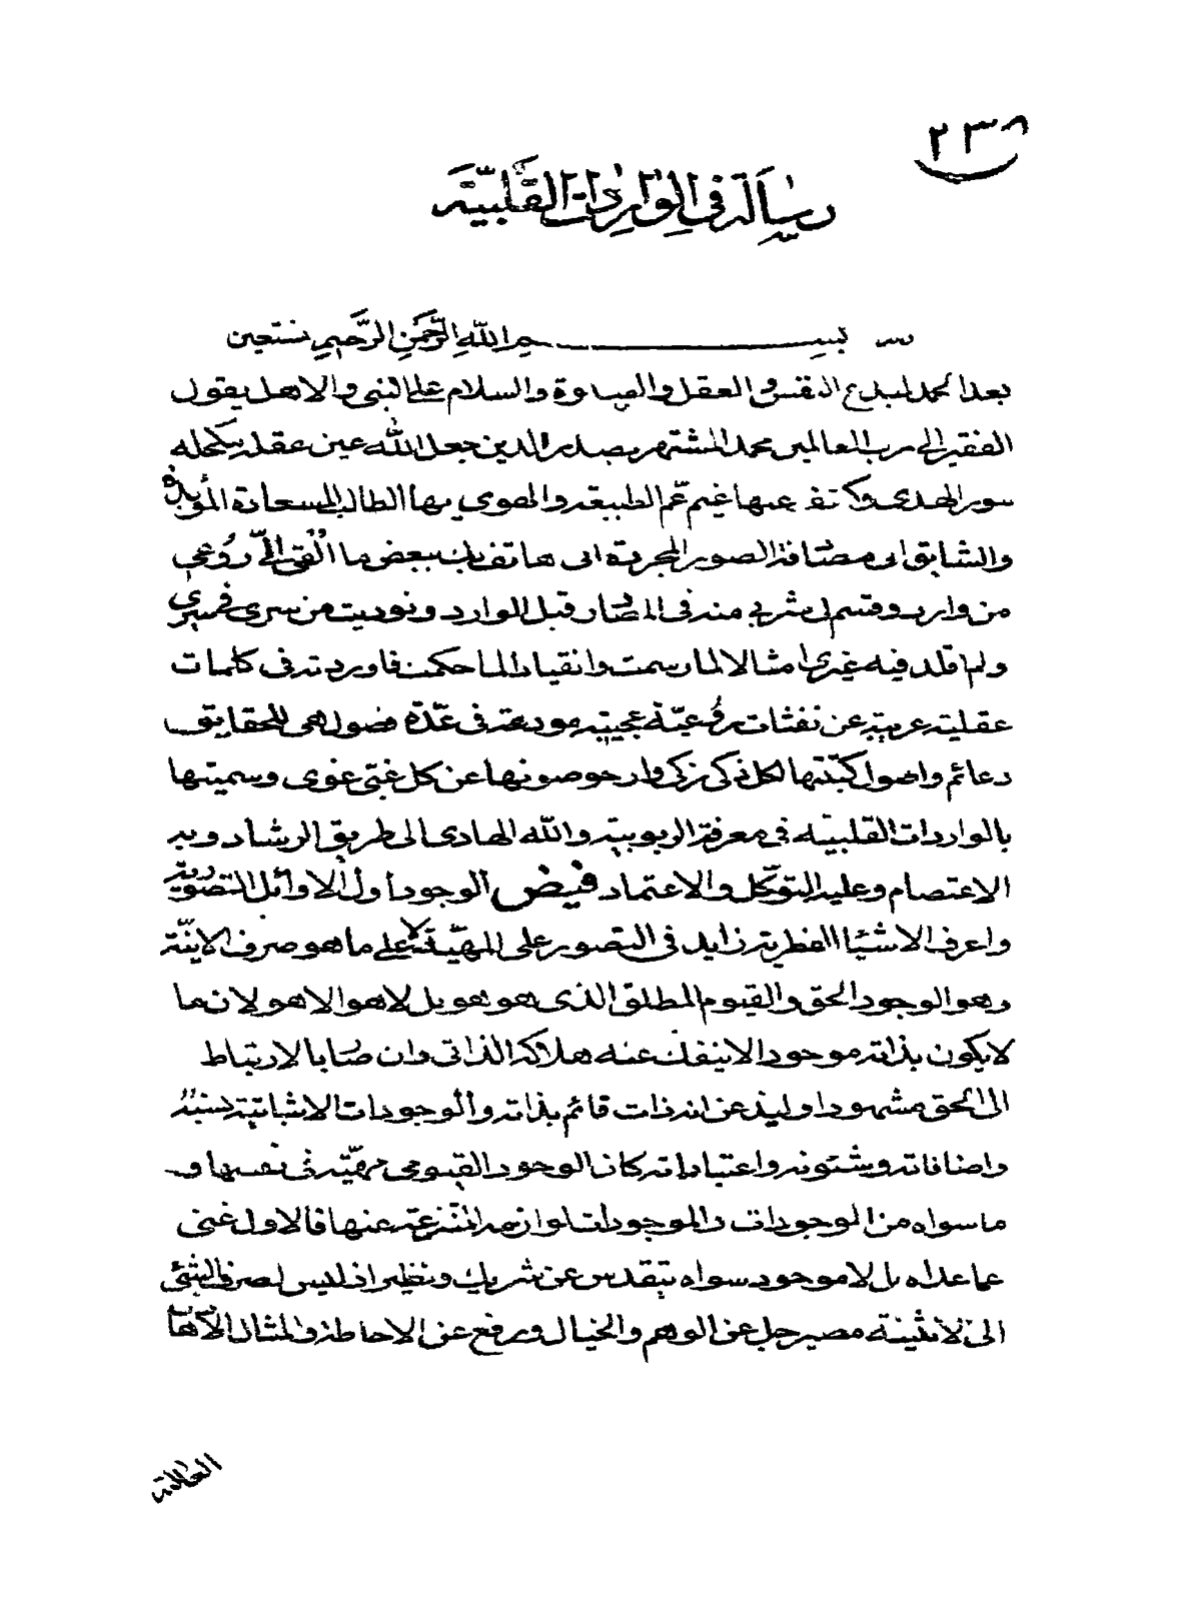 ٢٣٨
رسالة في الواردات القلبية
بسم الله الرحمن الرحيم نستعين
بعد الحمد لمبدع النفس والعقل والصلوة والسلام على النبي والاهل يقول
الفقير الى رب العالمين محمد المشتهر بصدر الدين جعل الله عين عقله مكحلة
بنور الهدى وكشف عنها غيم غم الطبيعة والهوى ايها الطالب للسعادة المؤبدة
والشايق الى مصادفة الصور المجردة انى هاتف بك ببعض ما القى الى روعى
من وارد وقسم لى شربى منه فى قبل الموارد ونوديت من سرى فى سرى
ولم اقلد فيه غيرى امتثالا لما رسمت وانقيادا لما حكمت فاوردته فى كلمات
عقلية عن نفثات روعية عجيبة مودعة فى عدة فصول هى للحقايق
دعائم واصول كتبتها لكل ذكى زكى وارجو صونها عن كل غبى غوى وسميتها
بالواردات القلبية فى معرفة الربوبية والله الهادى الى طريق الرشاد وبه
الاعتصام وعليه التوكل والاعتماد فيض الوجود اول الاوائل التصورية
واعرف الاشيا الفطرية زايد فى التصور على المهية لا على ما هو صرف الانية
وهو الوجود الحق والقيوم المطلق الذى هو هو بل لا هو الا هو لان ما
لا يكون بذاته موجودا لا ينفك عنه هلاكه الذاتى وان صار بالارتباط
الى الحق مشهودا وليذعن انه ذات قائم بذاته والوجودات الاثباتية نسبه
واضافاته وشئونه واعتباراته كان الوجود القيومى مهية فى نفسها و
ما سواه من الوجودات والموجودات لوازمه المنتزعة عنها فالاول غنى
عما عداه بل لا موجود سواه يتقدس عن شريك ونظير اذ ليس لصرف الشئ
الى الاثنينة مصير جل عن الوهم والخيال ورفع عن الاحاطة والمثال الآهات
العلامة